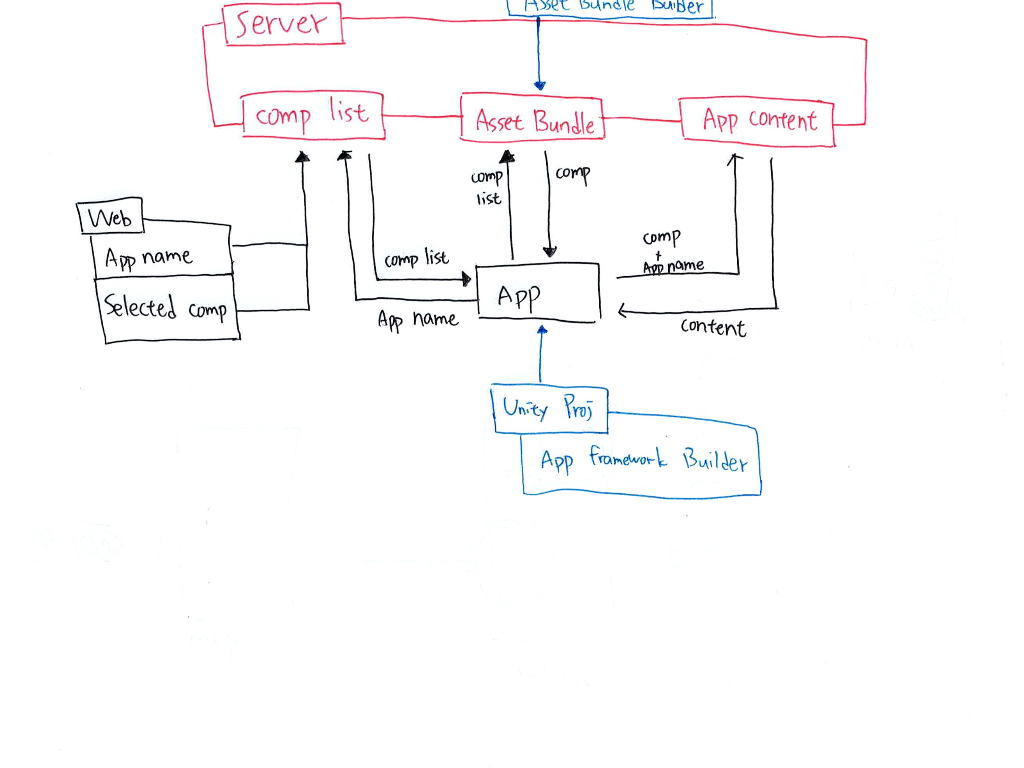 Asset Bundle Builder
Server
comp list
Asset Bundle
App content
comp
list
comp
Web
App name
Selected comp
comp list
App name
App
comp
+
App name
content
Unity Proj
App framework Builder